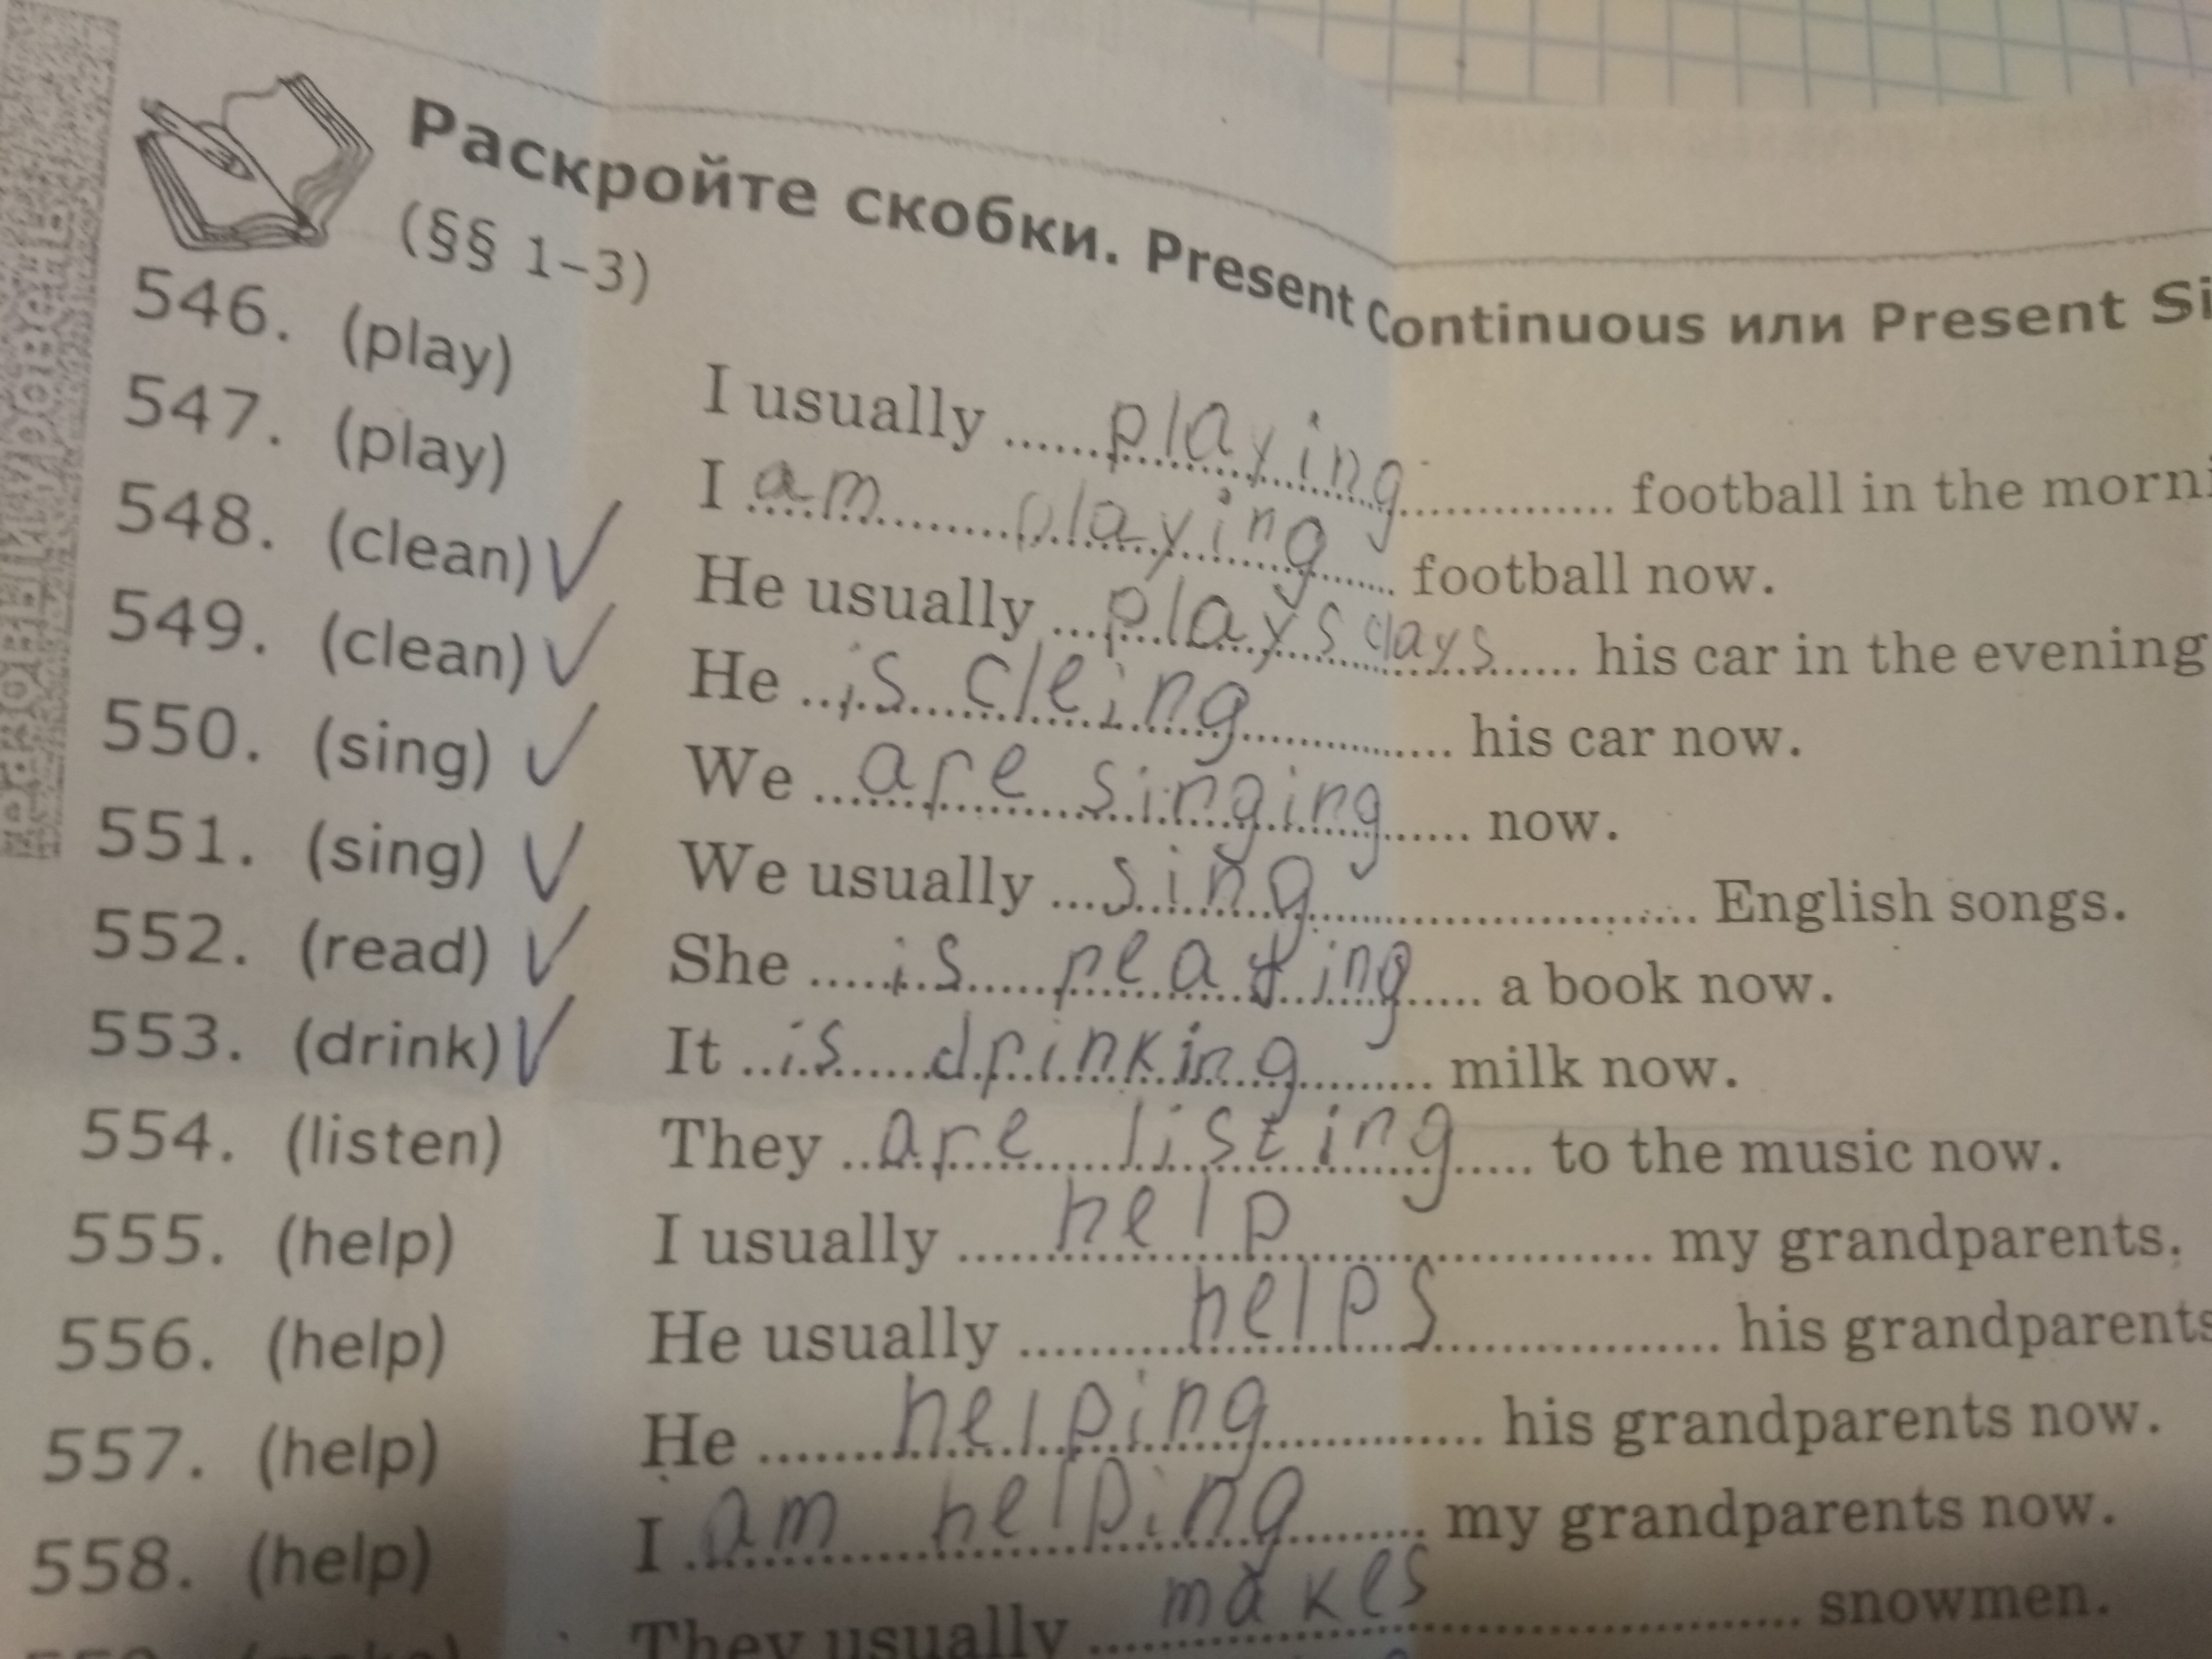 Раскройте скобки. Present Continuous или Present Si
(§§ 1–3)
546. (play) I usually playing football in the morni
547. (play) I am playing football now.
548. (clean) ✓ He usually plays clays his car in the evening
549. (clean) ✓ He is cleing his car now.
550. (sing) ✓ We are singing now.
551. (sing) ✓ We usually sing English songs.
552. (read) ✓ She is reading a book now.
553. (drink) ✓ It is drinking milk now.
554. (listen) They are listing to the music now.
555. (help) I usually help my grandparents.
556. (help) He usually helps his grandparents
557. (help) He helping his grandparents now.
558. (help) I am helping my grandparents now.
They usually makes snowmen.